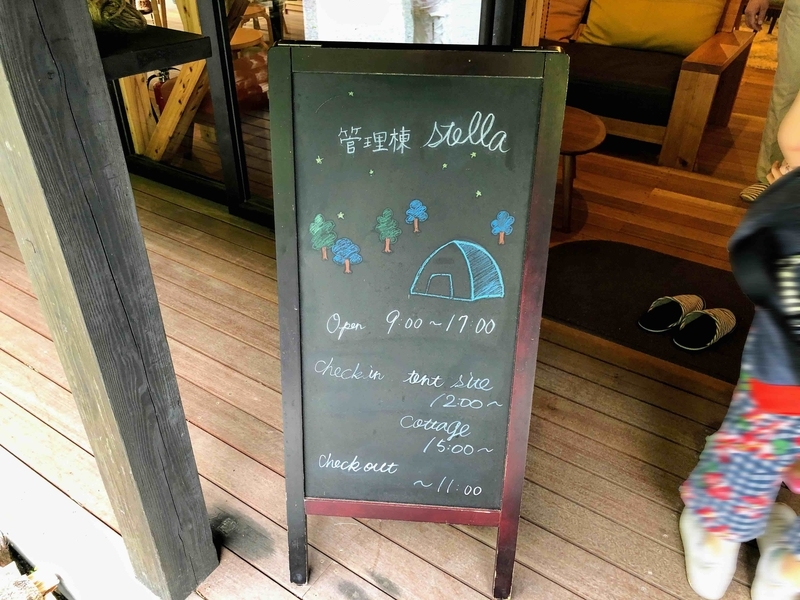 管理棟 stella
Open 9:00～17:00
check in tent site
12:00～
Cottage
15:00～
Check out
～11:00